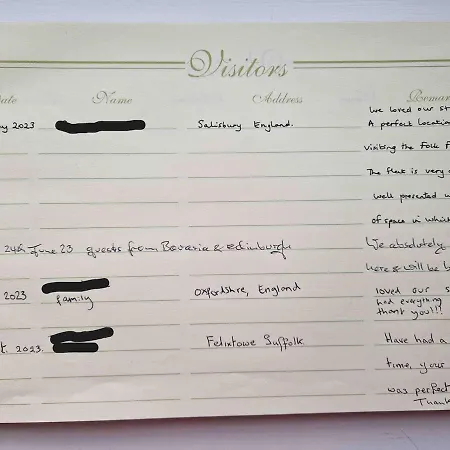 Visitors
ate Name Address Remar
We loved our st
ay 2023 Salisbury England. A perfect locatio
visiting the Folk F
The flat is very
well presented w
of space in which
24th June 23 guests from Bavaria & edinburgh We absolutely
here & will be b
2023 family Oxfordshire, England loved our s
had everything
thank you!!!
t. 2023. Felixtowe Suffolk Have had a
time, your
was perfect
Thank